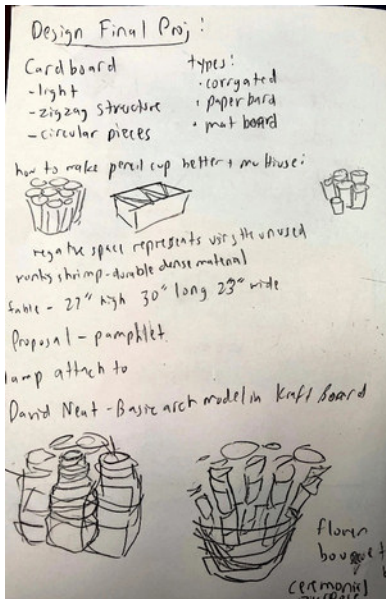 Design Final Proj:
Cardboard
-light
-zigzag structure
-circular pieces
types:
·corrgated
·paperbard
·mat board
how to make pencil cup better + multiuse:
negative space represents using the unused
shrimp-durable dense material
table - 27" high 30" long 23" wide
Proposal - pamphlet
lamp attach to
David Neat - Basic arch model in Kraft Board
flower
bouquet
ceremonial